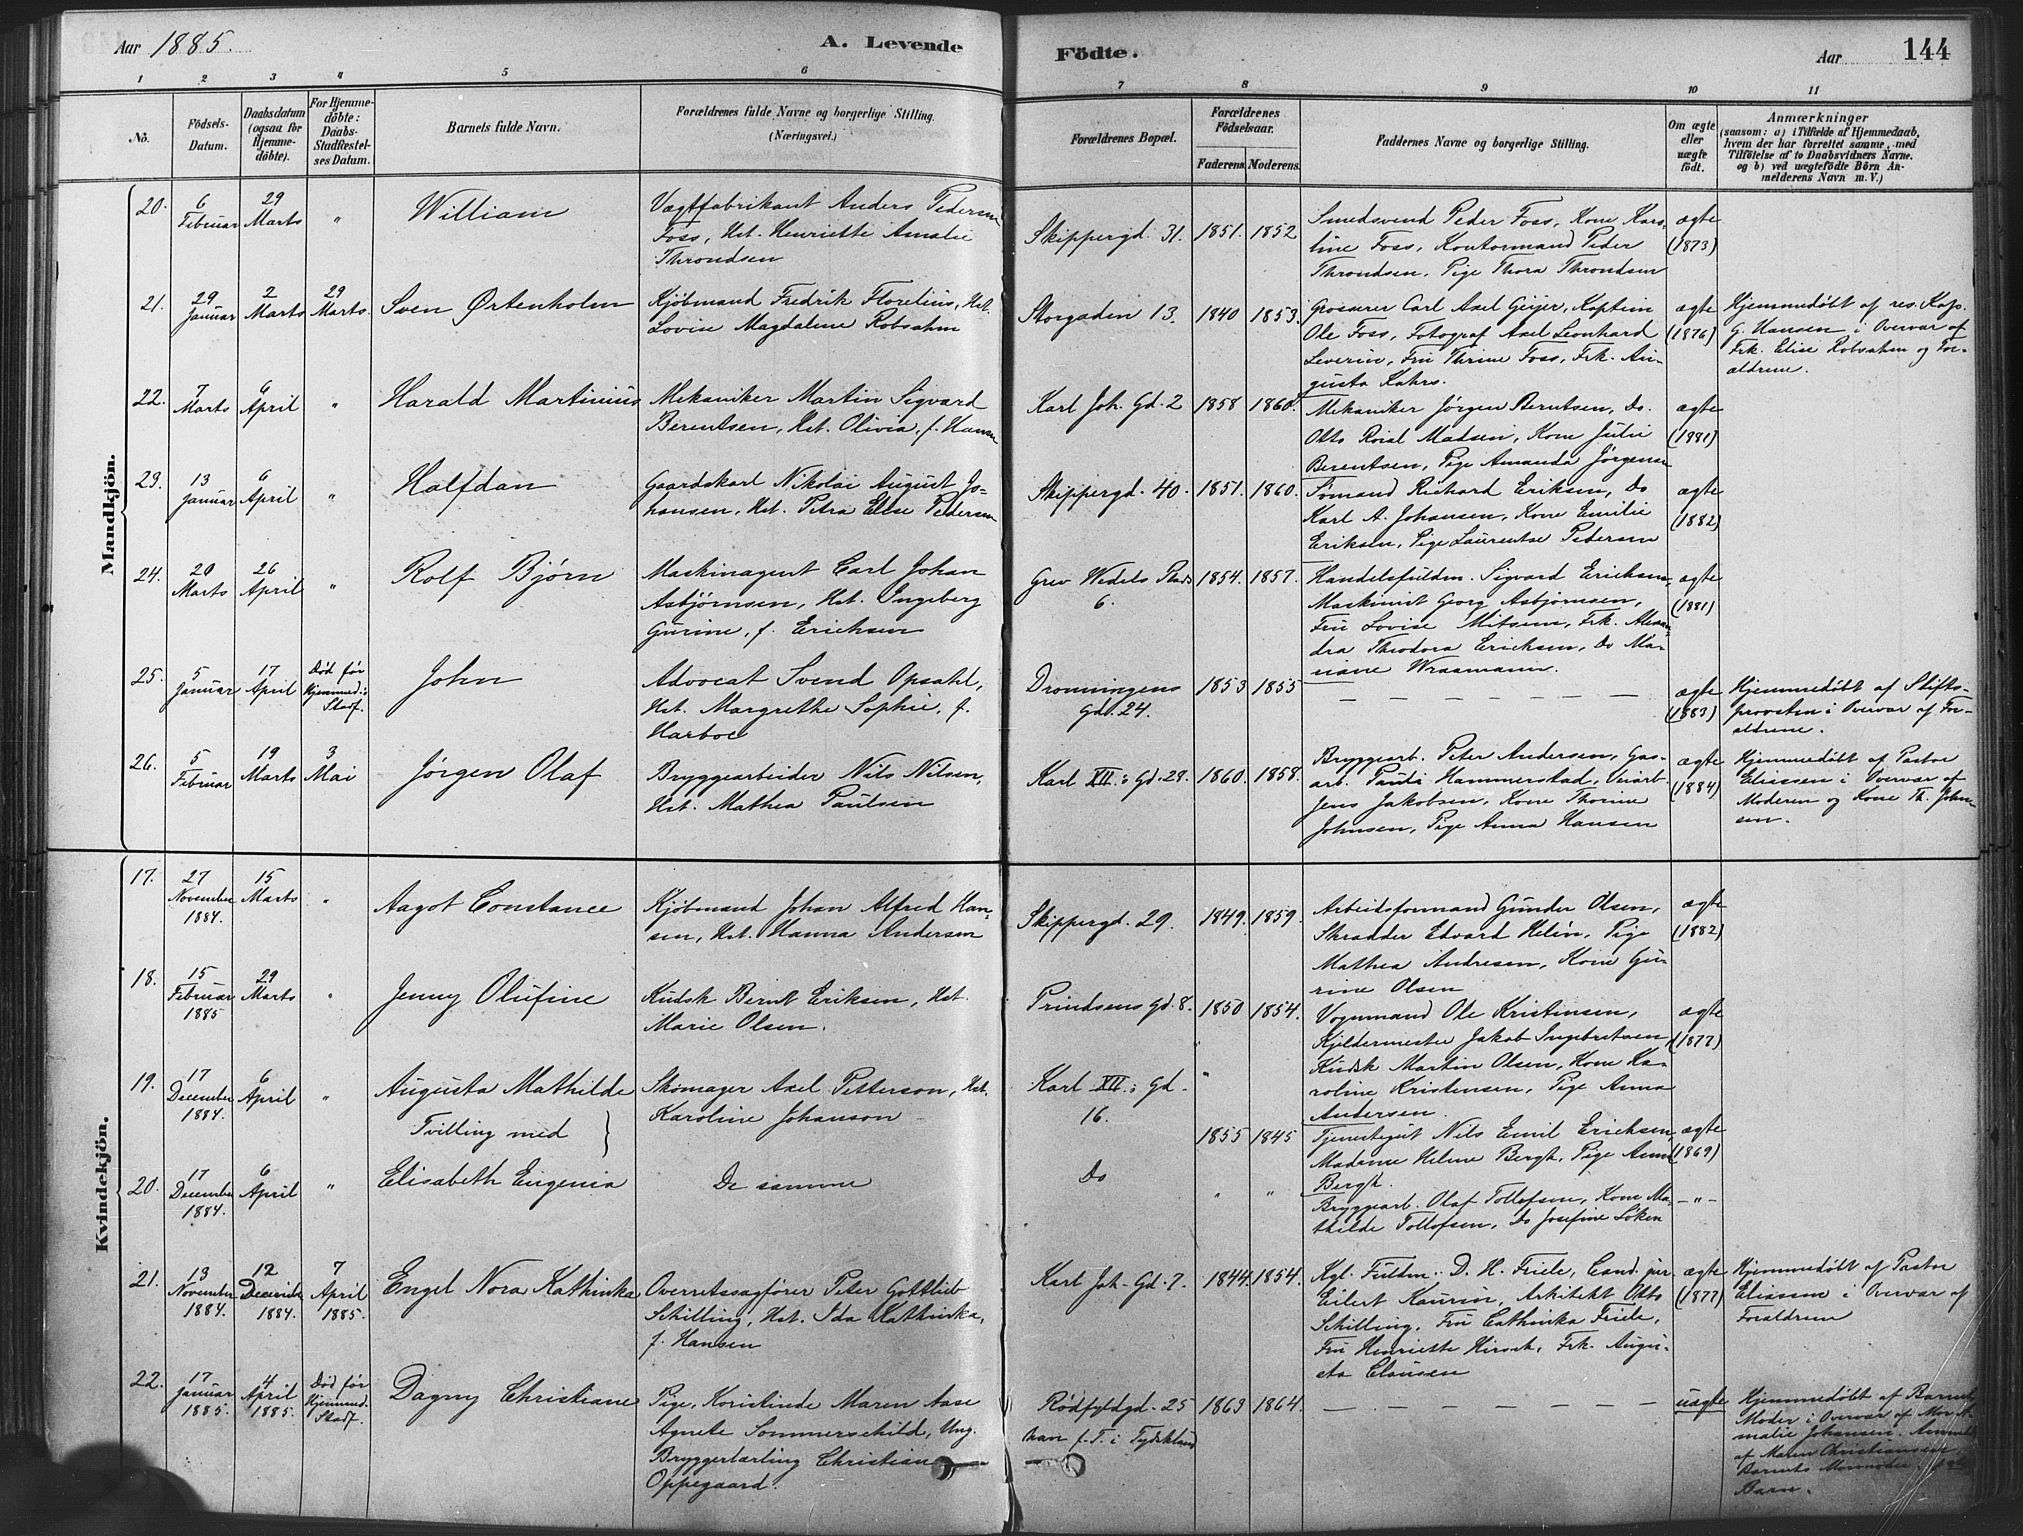 Aar 1885.
A. Levende
Födte.
Aar
144
1 2 3 4 5 6 7 8 9 10 11
No.
Födsels-
Datum.
Daabsdatum
(ogsaa for
Hjemme-
döbte).
For Hjemme-
döbte:
Daabs-
Stadfestel-
ses Datum.
Barnets fulde Navn.
Forældrenes fulde Navne og borgerlige Stilling.
(Næringsvei.)
Forældrenes Bopæl.
Forældrenes
Födselsaar.
Faderens. Moderens.
Faddernes Navne og borgerlige Stilling.
Om ægte
eller
uægte
födt.
Anmærkninger
(saasom: a) i Tilfælde af Hjemmedaab,
hvem der har forrettet samme, med
Tilföielse af to Daabsvidners Navne.
og b) ved uægtefödte Börn An-
melderens Navn m. V.)
Mandkjön.
20. 6 Februar 29 Marts " William
Vægtfabrikant Anders Pedersen
Foss, Hst. Henriette Amalie
Throndsen
Skippergd. 31. 1851. 1852
Smedsvend Peder Foss, Kone Kars-
tine Foss, Kontormand Peder
Throndsen, Pige Thora Throndsen
ægte
(1873)
21. 29 Januar 2 Marts 29 Marts. Sven Ørtenholm
Kjøbmand Fredrik Florelius, Hst.
Lovise Magdalene Robsahm
Storgaden 13. 1840 1853.
Grosserer Carl Axel Geijer, Kaptein
Ole Foss, Fotograf Axel Leonhard
Leverin, Fru Thrine Foss, Frk. Au-
gusta Kahrs.
ægte
(1876)
Hjemmedøbt af res. Kap.
G. Hansen i Overvær af
Frk. Elise Robsahm og For-
ældrene.
22. 7 Marts 6 April " Harald Martinius
Mekaniker Martin Sigvard
Berentsen, Hst. Olivia, f. Hansen
Karl Joh. Gd. 2 1858 1860.
Mekaniker Jørgen Berntsen, Do.
Otto Roial Madsen, Kone Julie
Berentsen, Pige Amanda Jørgensen
ægte
(1881)
23. 13 Januar 6 April " Halfdan
Gaardskarl Nikolai August Jo-
hansen, Hst. Petra Elise Pedersen
Skippergd. 40. 1851. 1860.
Sømand Richard Eriksen, Do
Karl A. Johansen, Kone Emilie
Eriksen, Pige Laurentse Pedersen
ægte
(1882)
24. 20 Marts 26 April " Rolf Bjørn
Maskinagent Carl Johan
Asbjørnsen, Hst. Ingeborg
Gurine, f. Erichsen
Grev Wedels Plads
6.
1854. 1857.
Handelsfuldm. Sigvard Erichsen,
Maskinist Georg Asbjørnsen,
Fru Lovise Nilsen, Frk. Alexan-
dra Theodora Erichsen, Do Ma-
riane Wraamann.
ægte
(1881)
25. 5 Januar 17 April Død før
Hjemmed.s
Stadf.
John
Advocat Svend Opsahl,
Hst. Margrethe Sophie, f.
Harboe
Dronningens
Gd. 24.
1853 1855
— — — — — —
ægte
(1883)
Hjemmedøbt af Stifts-
provsten i Overvær af For-
ældrene.
26. 5 Februar 19 Marts 3 Mai Jørgen Olaf
Bryggearbeider Nils Nilsen,
Hst. Mathea Paulsen
Karl XII.s Gd. 28. 1860. 1858.
Bryggearb. Peter Andersen, Gas-
arb. Hammerstad,
Jens Jakobsen, Kone Thorine
Johnsen, Pige Anna Hansen
ægte
(1884)
Hjemmedøbt af Pastor
Eliassen i Overvær af
Moderen og Kone Th. John-
sen.
Kvindekjön.
17. 27 November 1884. 15 Marts " Aagot Constance
Kjøbmand Johan Alfred Han-
sen, Hst. Hanna Andersen
Skippergd. 29. 1849. 1859.
Arbeidsformand Gunder Olsen,
Skrædder Edvard Helin, Pige
Mathea Andresen, Kone Gu-
rine Olsen
ægte
(1882)
18. 15 Februar 1885 29 Marts " Jenny Olufine
Kudsk Bernt Eriksen, Hst.
Marie Olsen.
Prindsens Gd. 8. 1850 1854.
Vognmand Ole Kristensen,
Kjeldermester Jakob Ingebretsen,
Kudsk Martin Olsen, Kone Ka-
roline Kristensen, Pige Anna
Andersen.
ægte
(1877)
19. 17 December 1884. 6 April " Augusta Mathilde
Tvilling med }
Skomager Axel Petterson, Hst.
Karoline Johanson
Karl XII.s Gd.
16.
1855 1845
Tjenestegut Nils Emil Erichsen,
Madame Helene Bergh, Pige Anna
Bergh.
ægte
(1869)
20. 17 December 1884. 6 April " Elisabeth Eugenia
De samme
Do " "
Bryggearb. Olaf Tollofsen, Kone Ma-
thilde Tollofsen, Do Josefine Løken
— " —
21. 13 November 1884. 12 December 1884. 7 April 1885. Engel Nora Kathinka
Overretssagfører Peter Gottlieb
Schilling, Hst. Ida Kathinka,
f. Hansen
Karl Joh. Gd. 7. 1844. 1854.
Kgl. Fuldm. D. H. Friele, Cand. jur
Eilert Kaurin, Arkitekt Otto
Schilling, Fru Cathinka Friele,
Fru Henriette Hirsch, Frk. Augu-
sta Clausen
ægte
(1877)
Hjemmedøbt af Pastor
Eliassen i Overvær af
Forældrene
22. 17 Januar 1885. 4 April 1885. Død før
Hjemmed.
Stadf.
Dagny Christiane
Pige, Maren Aase
Agnete Sommerschild, Ung.
Bryggerlærling Christian
Oppegaard.
Rødfyldgd. 25
han f. T. i Tydskland
1863 1864.
— — — — — —
uægte
Hjemmedøbt af Barnets
Moder i Overvær af
Johansen.
af Maren Christiansen
Barnets Mormoder.
Barn.